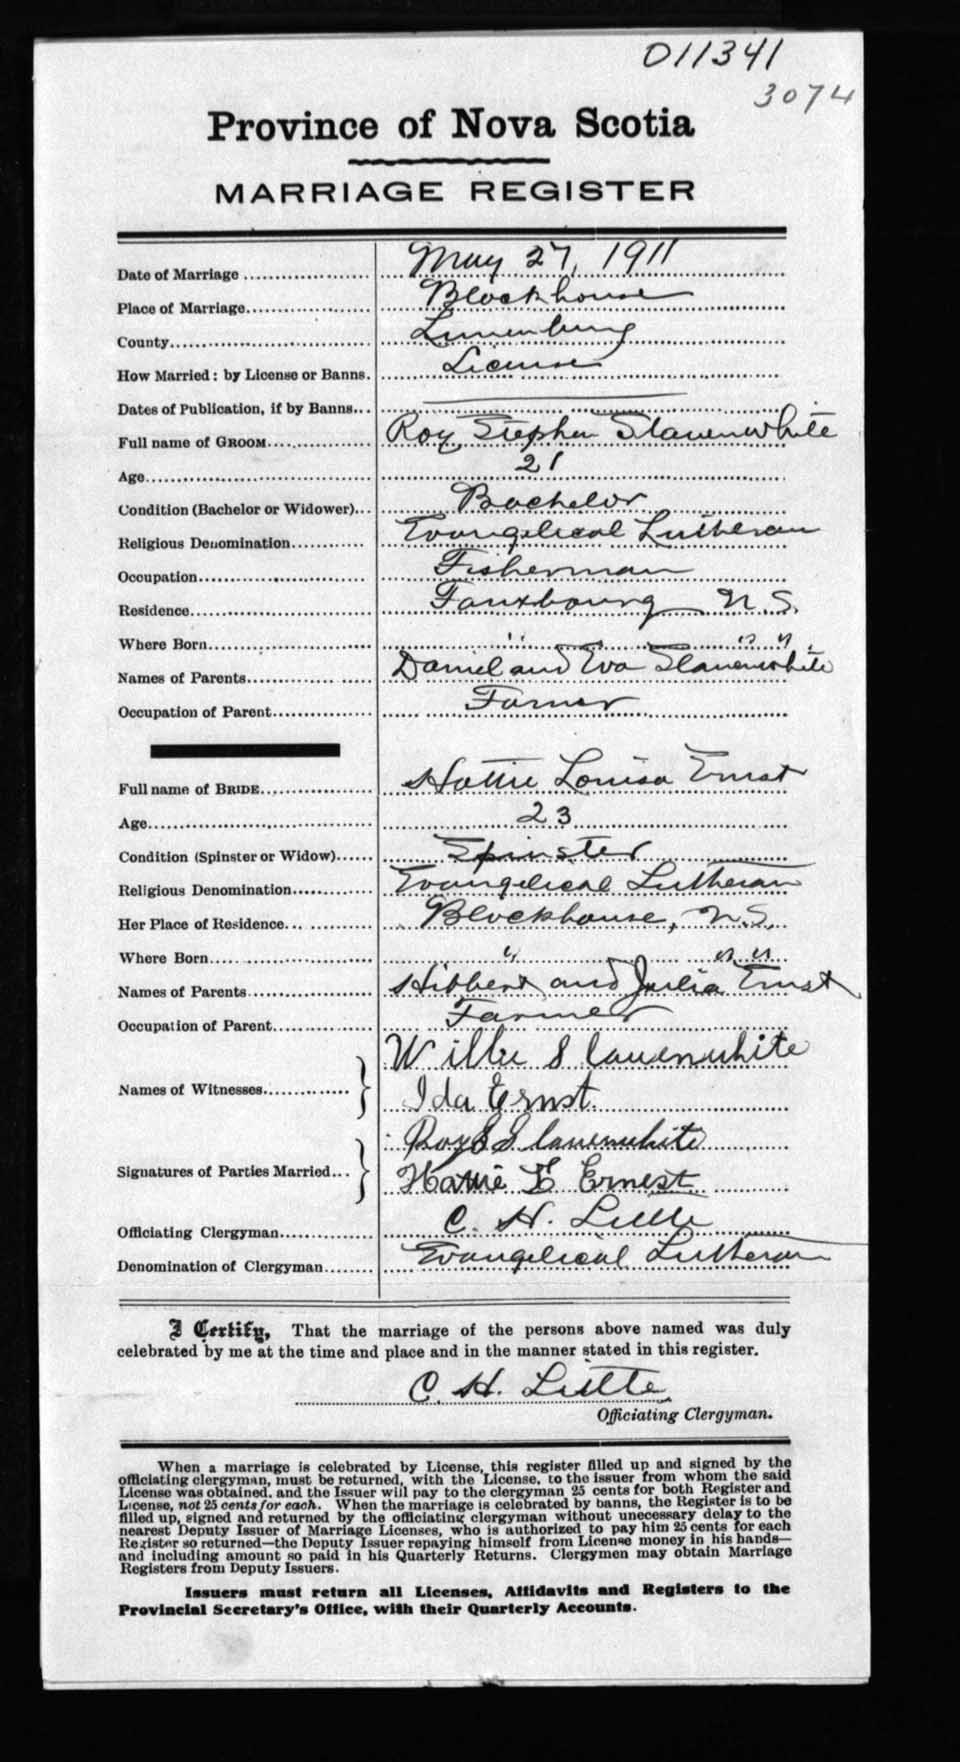 011341
3074
Province of Nova Scotia
MARRIAGE REGISTER
Date of Marriage May 27, 1911
Place of Marriage Blockhouse
County Lunenburg
How Married: by License or Banns. License
Dates of Publication, if by Banns
Full name of GROOM Roy Stephen Slauenwhite
Age 21
Condition (Bachelor or Widower) Bachelor
Religious Denomination Evangelical Lutheran
Occupation Fisherman
Residence Fauxbourg N.S.
Where Born " " "
Names of Parents Daniel and Eva Slauenwhite
Occupation of Parent Farmer
Full name of BRIDE Hattie Louisa Ernst
Age 23
Condition (Spinster or Widow) Spinster
Religious Denomination Evangelical Lutheran
Her Place of Residence Blockhouse, N.S.
Where Born " " "
Names of Parents Hibbert and Julia Ernst
Occupation of Parent Farmer
Names of Witnesses Willie Slauenwhite
Ida Ernst.
Signatures of Parties Married Roy S Slauenwhite
Hattie L Ernest
Officiating Clergyman C. H. Little
Denomination of Clergyman Evangelical Lutheran
I Certify, That the marriage of the persons above named was duly
celebrated by me at the time and place and in the manner stated in this register.
C. H. Little
Officiating Clergyman.
When a marriage is celebrated by License, this register filled up and signed by the
officiating clergyman, must be returned, with the License, to the issuer from whom the said
License was obtained, and the Issuer will pay to the clergyman 25 cents for both Register and
License, not 25 cents for each. When the marriage is celebrated by banns, the Register is to be
filled up, signed and returned by the officiating clergyman without unnecessary delay to the
nearest Deputy Issuer of Marriage Licenses, who is authorized to pay him 25 cents for each
Register so returned—the Deputy Issuer repaying himself from License money in his hands—
and including amount so paid in his Quarterly Returns. Clergymen may obtain Marriage
Registers from Deputy Issuers.
Issuers must return all Licenses, Affidavits and Registers to the
Provincial Secretary's Office, with their Quarterly Accounts.